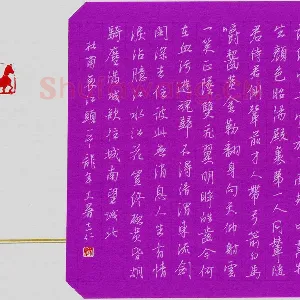 生顏色昭陽殿裏第一人同輦隨
君侍君側輦前才人帶弓箭白馬
嚼齧黃金勒翻身向天仰射雲
一笑正墜雙飛翼明眸皓齒今何
在血污遊魂歸不得清渭東流劍
閣深去住彼此無消息人生有情
淚沾臆江水江花豈終極黃昏胡
騎塵滿城欲往城南望城北
杜甫哀江頭